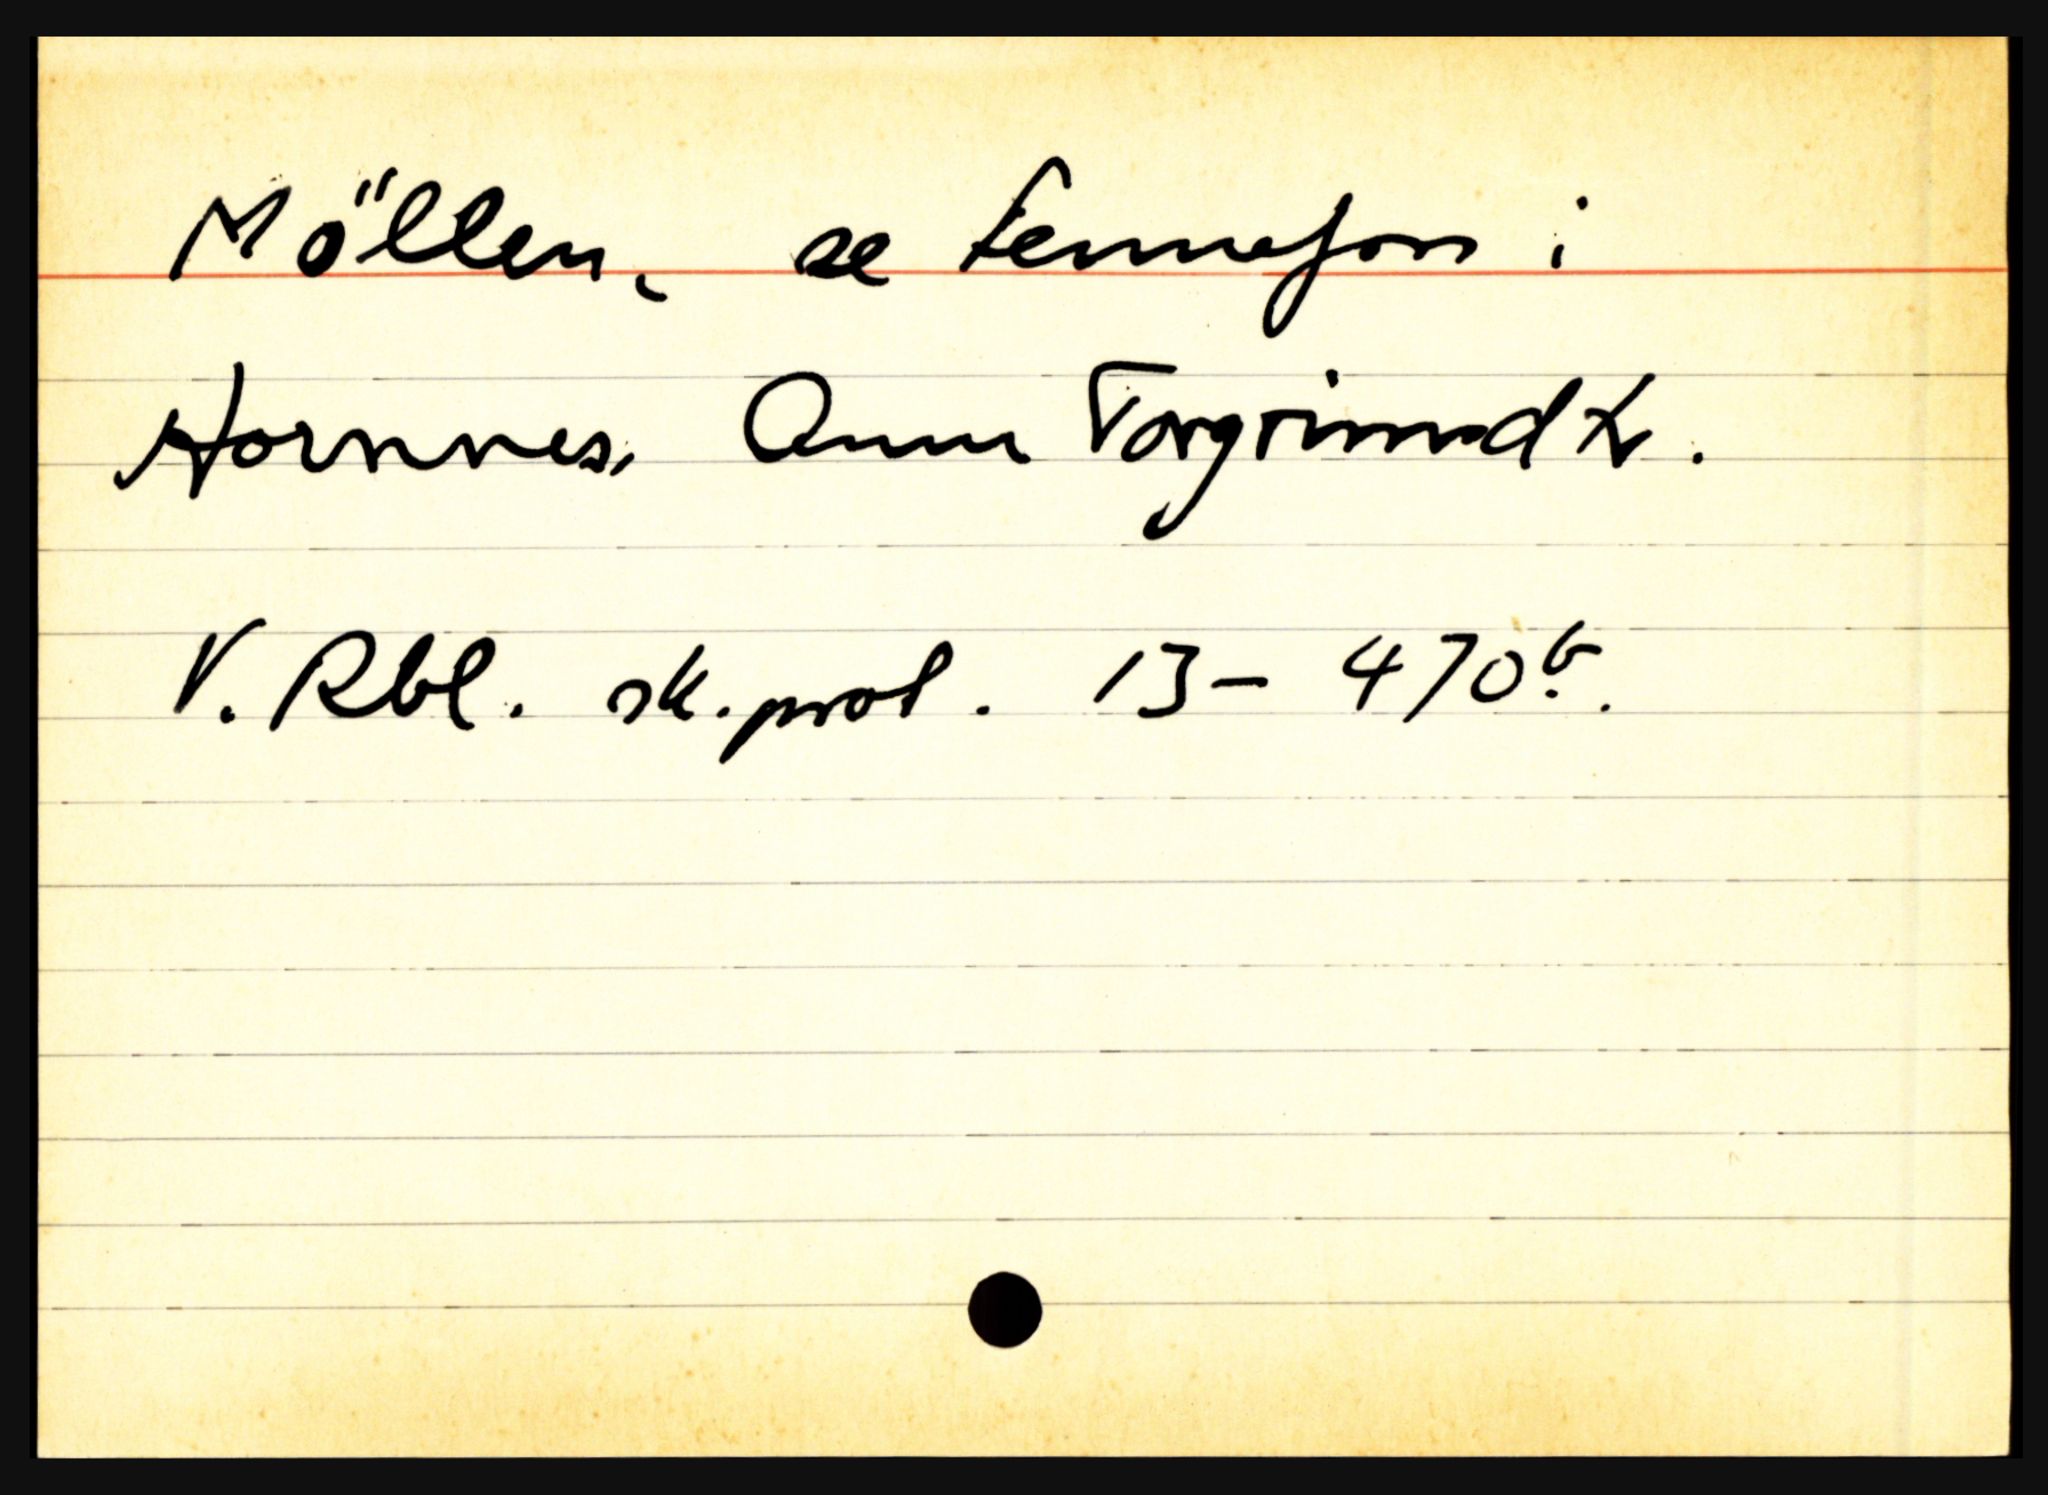 Möllen, se Fennefoss i
Hornnes. Anne Torgrimsdtr.
V. Rbl. sk.prot. 13 - 470b.